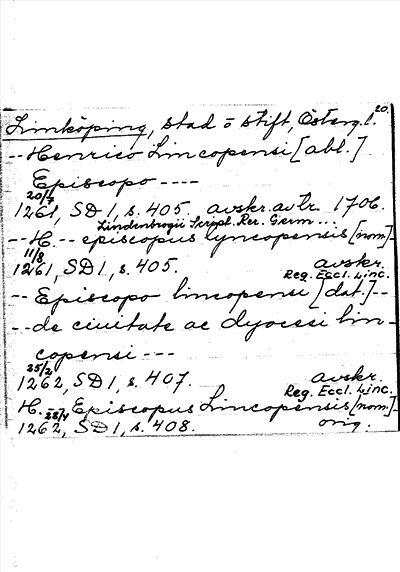 20.
Linköping, stad o stift, Österg. l.
-- Henrico Lincopensi [abl.]
Episcopo ----
20/4
1261, SD 1, s. 405. avskr. av tr. 1706.
Lindenbrogii Scrppl. Rer. Germ...
-- H. -- episcopus lyncopensis [nom]-
11/8
1261, SD 1, s. 405. avskr.
Reg. Eccl. Linc.
-- Episcopo lincopensi [dat.] --
-- de ciuitate ac dyocesi lin-
copensi ---
25/2
1262, SD 1, s. 407. avskr.
Reg. Eccl. Linc.
H. -- Episcopus Lincopensis [nom.]-
28/4
1262, SD 1, s. 408. orig.